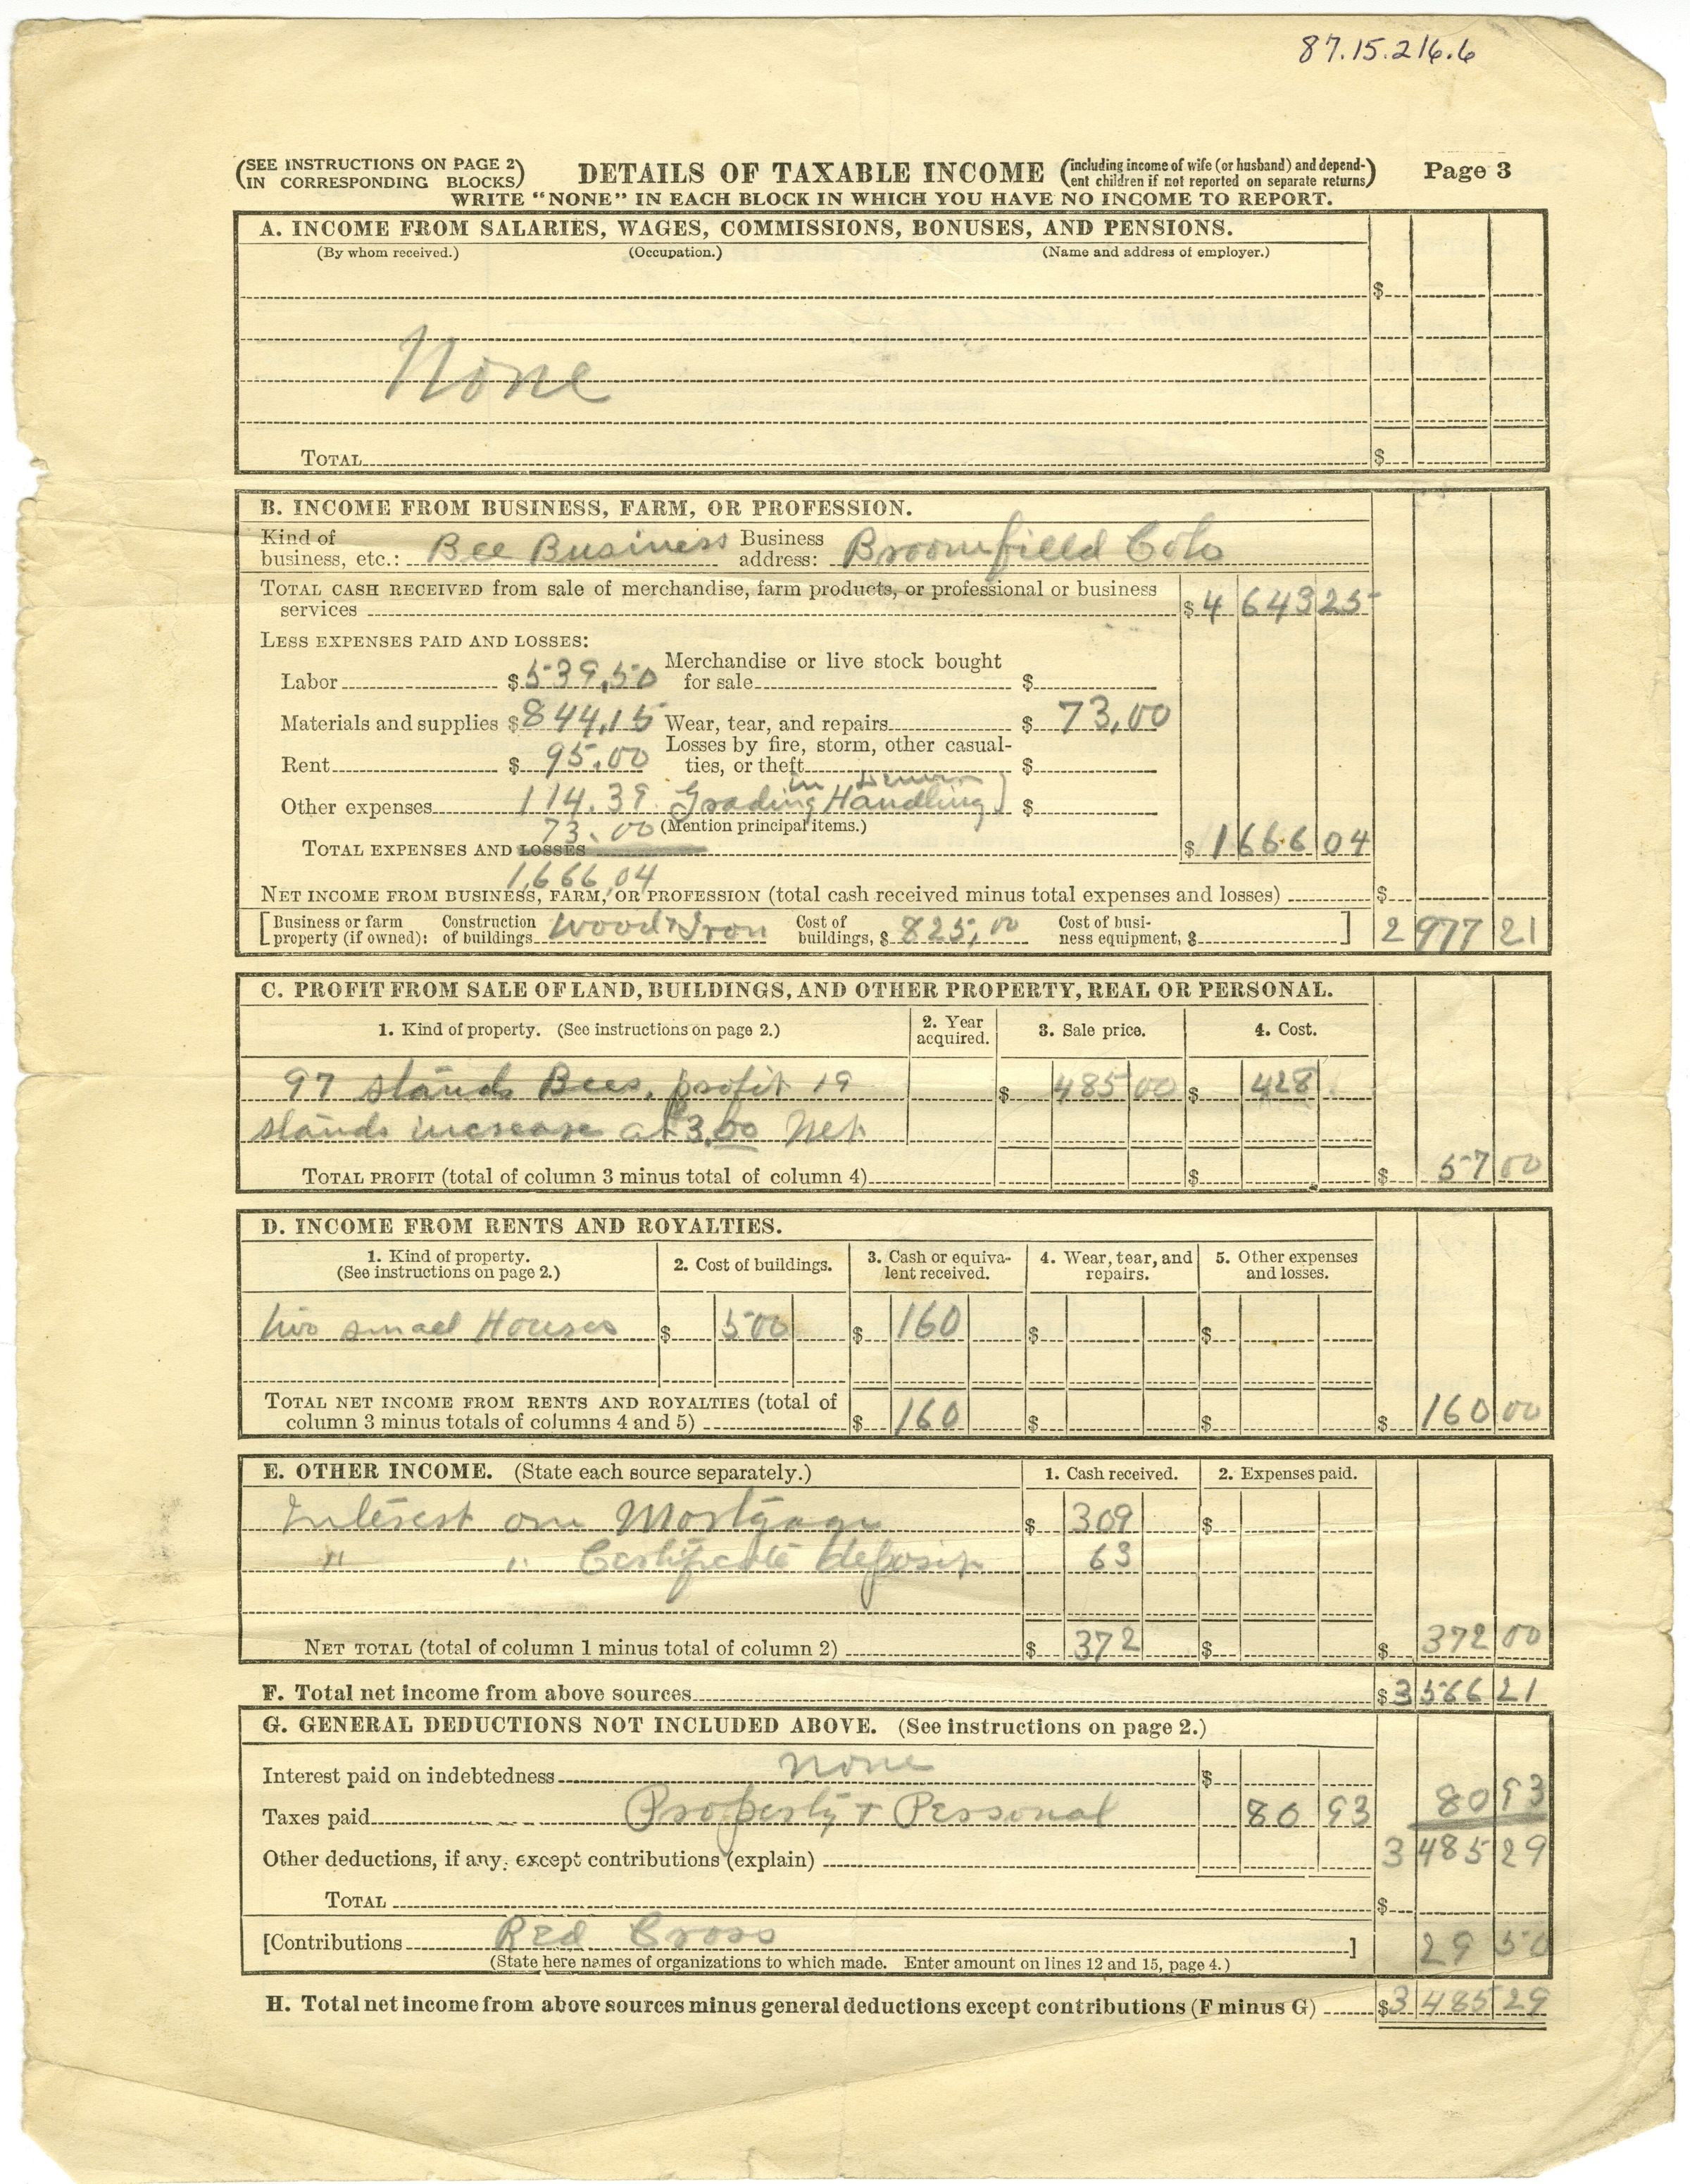 87.15.216.6
(SEE INSTRUCTIONS ON PAGE 2 IN CORRESPONDING BLOCKS) DETAILS OF TAXABLE INCOME (including income of wife (or husband) and dependent children if not reported on separate returns) Page 3
WRITE "NONE" IN EACH BLOCK IN WHICH YOU HAVE NO INCOME TO REPORT.
A. INCOME FROM SALARIES, WAGES, COMMISSIONS, BONUSES, AND PENSIONS.
(By whom received.) (Occupation.) (Name and address of employer.)
$
None
TOTAL $
B. INCOME FROM BUSINESS, FARM, OR PROFESSION.
Kind of business, etc.: Bee Business Business address: Broomfield Colo
TOTAL CASH RECEIVED from sale of merchandise, farm products, or professional or business
services $ 4 643 25
LESS EXPENSES PAID AND LOSSES:
Labor $ 539.50 Merchandise or live stock bought for sale $
Materials and supplies $ 844.15 Wear, tear, and repairs $ 73.00
Rent $ 95.00 Losses by fire, storm, other casualties, or theft $
in Denver
Other expenses 114.39 Grading Handling $
73.00 (Mention principal items.)
TOTAL EXPENSES AND LOSSES $ 1666 04
1,666.04
NET INCOME FROM BUSINESS, FARM, OR PROFESSION (total cash received minus total expenses and losses) $
[Business or farm property (if owned): Construction of buildings Wood & Iron Cost of buildings, $ 825.00 Cost of business equipment, $ ] 2 977 21
C. PROFIT FROM SALE OF LAND, BUILDINGS, AND OTHER PROPERTY, REAL OR PERSONAL.
1. Kind of property. (See instructions on page 2.) 2. Year acquired. 3. Sale price. 4. Cost.
97 stands Bees, profit 19 $ 485 00 $ 428
stands increase at $3.00 Net
TOTAL PROFIT (total of column 3 minus total of column 4) $ $ 57 00
D. INCOME FROM RENTS AND ROYALTIES.
1. Kind of property. (See instructions on page 2.) 2. Cost of buildings. 3. Cash or equivalent received. 4. Wear, tear, and repairs. 5. Other expenses and losses.
two small Houses $ 500 $ 160 $ $
TOTAL NET INCOME FROM RENTS AND ROYALTIES (total of
column 3 minus totals of columns 4 and 5) $ 160 $ $ $ 160 00
E. OTHER INCOME. (State each source separately.) 1. Cash received. 2. Expenses paid.
Interest on Mortgage $ 309 $
" " Certificate deposit 63
NET TOTAL (total of column 1 minus total of column 2) $ 372 $ $ 372 00
F. Total net income from above sources $ 3 566 21
G. GENERAL DEDUCTIONS NOT INCLUDED ABOVE. (See instructions on page 2.)
Interest paid on indebtedness none $
Taxes paid Property & Personal 80 93 80 93
Other deductions, if any, except contributions (explain) 3 485 29
TOTAL $
[Contributions Red Cross ] 29 50
(State here names of organizations to which made. Enter amount on lines 12 and 15, page 4.)
H. Total net income from above sources minus general deductions except contributions (F minus G) $ 3 485 29